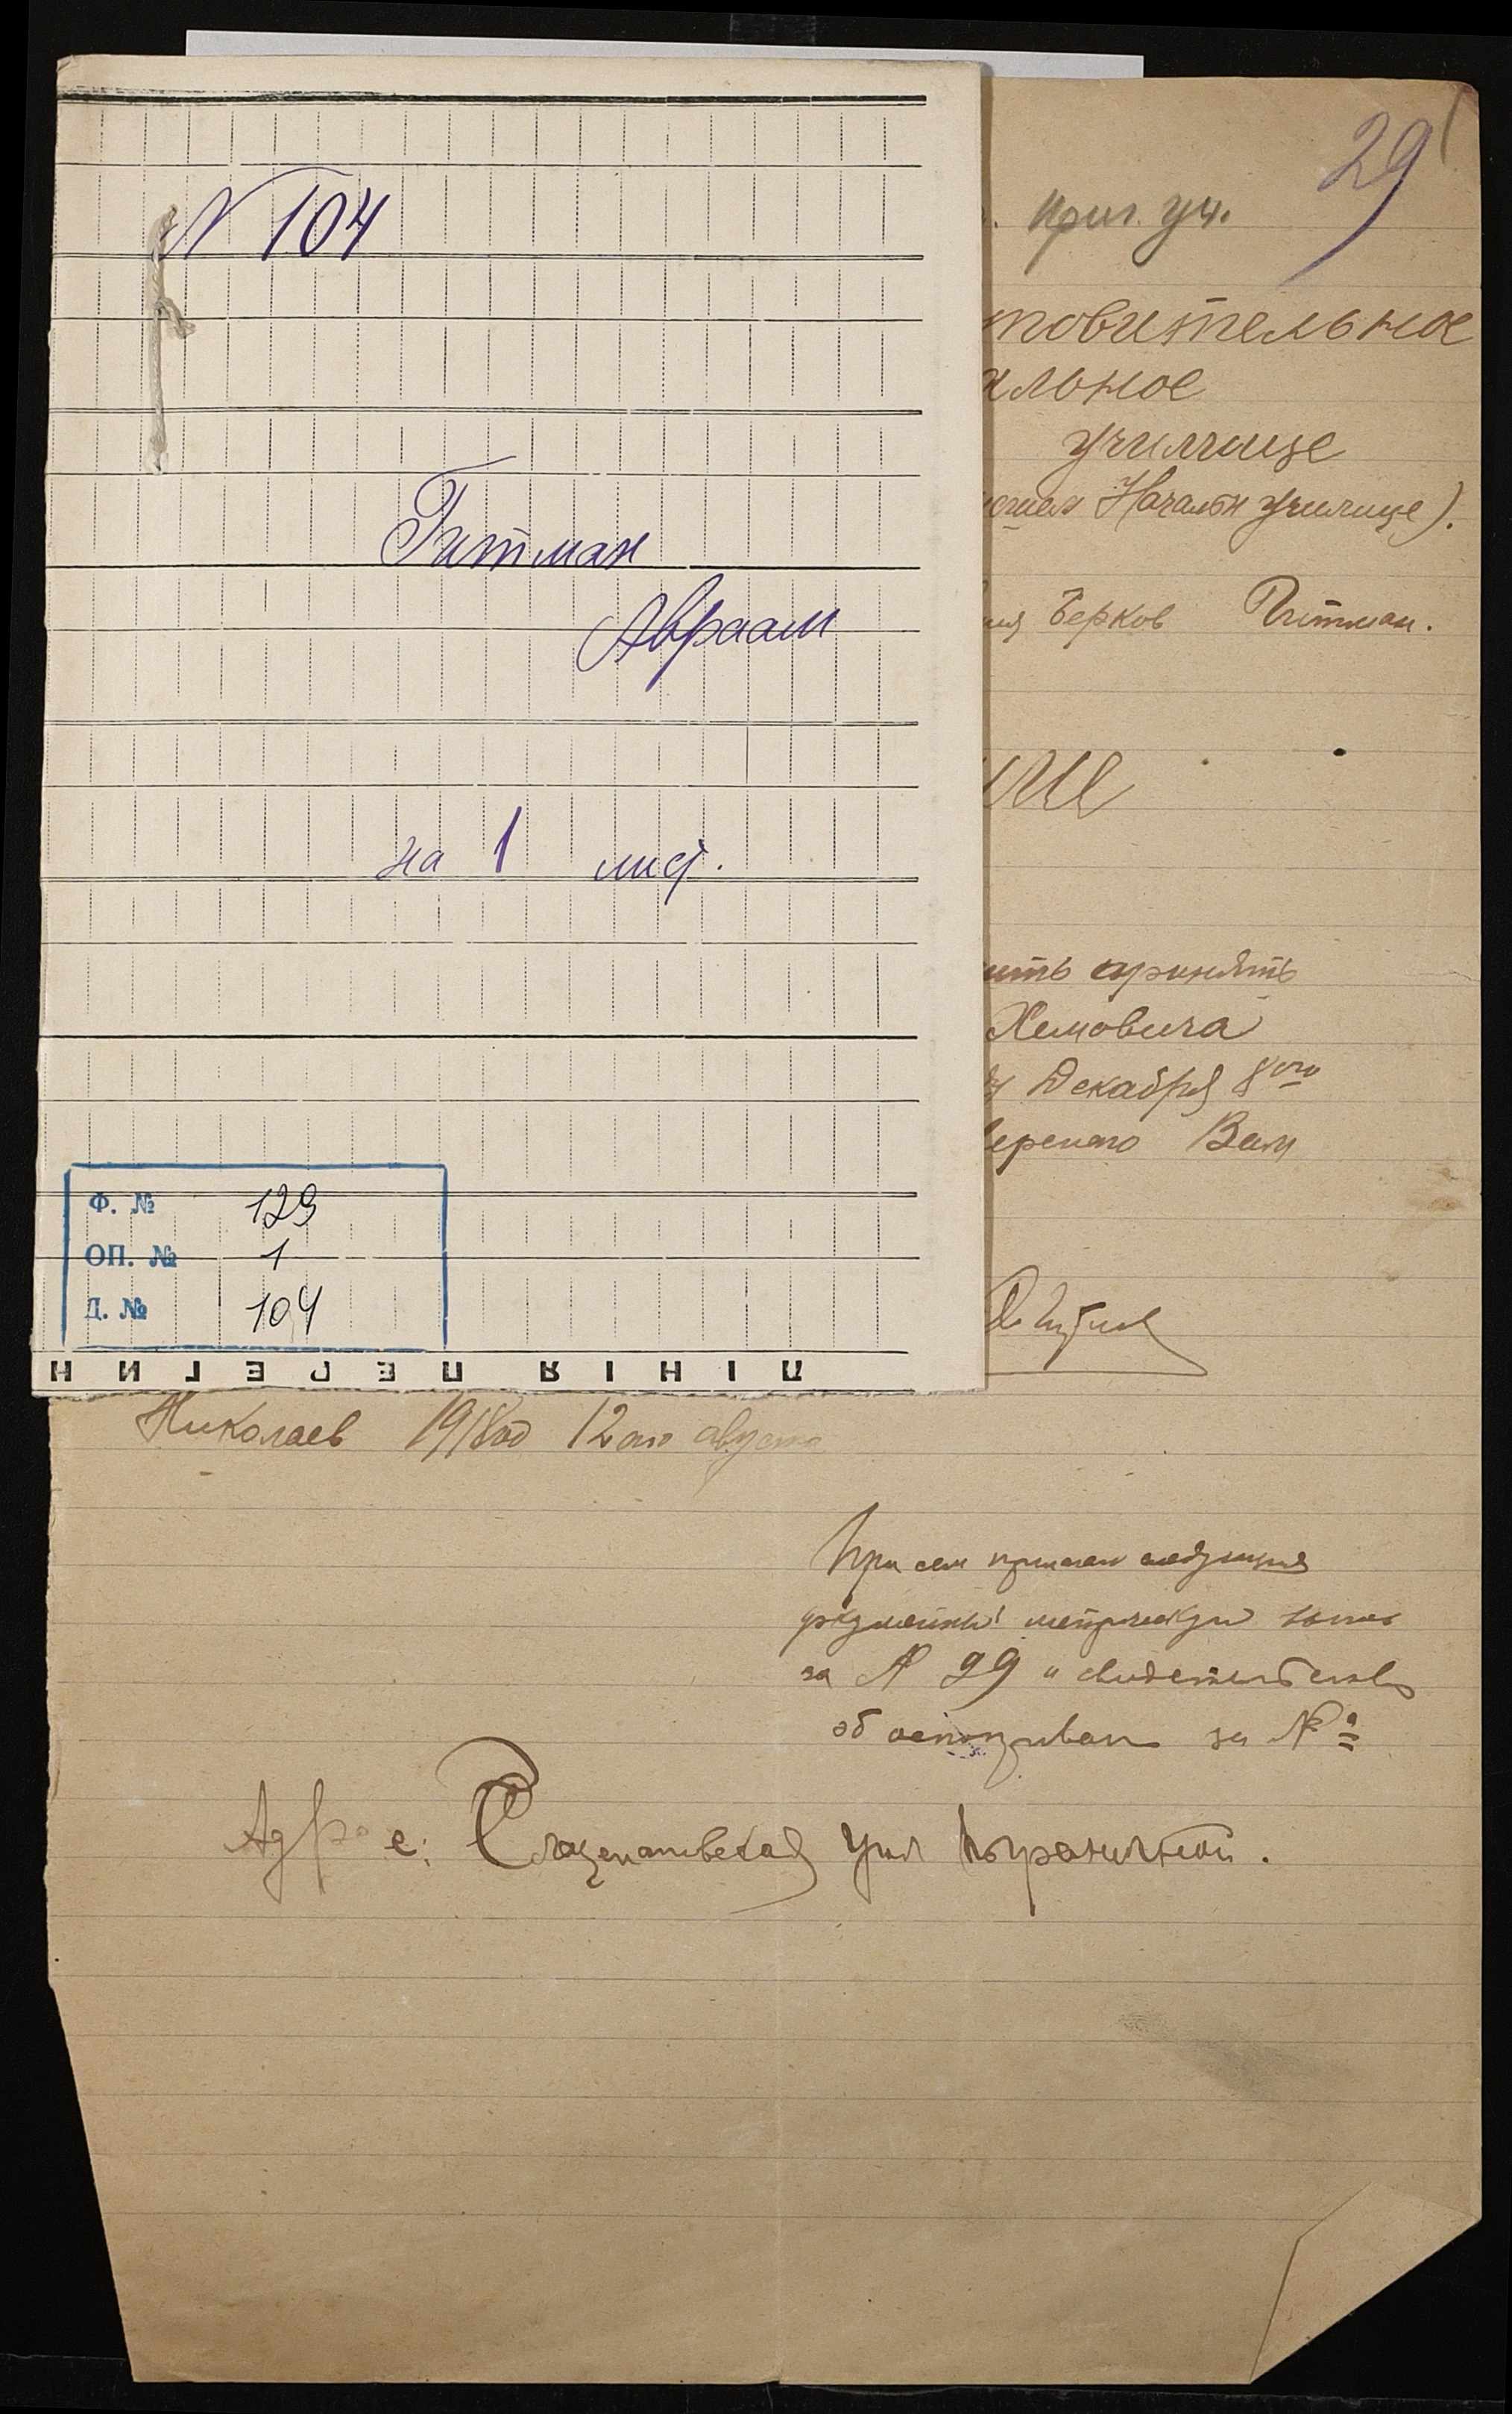 N 104
Гитман
Авраам
на 1 лист.
Ф. № 129
ОП. № 1
Д. № 104
ЛІНІЯ ПЕРЕГИН
29
. приг. уч.
товительное
альное
училище
Началн училище).
Берков Гитман.
ние
ить принять
Хемовича
Декабря 8ого
Вам
Николаев 1918од 12ого августа
При сем прилагаю следующия
документы: метрическую
за № 29 и свидетельство
об оспопривании за №
Адрес: угол Пограничной.